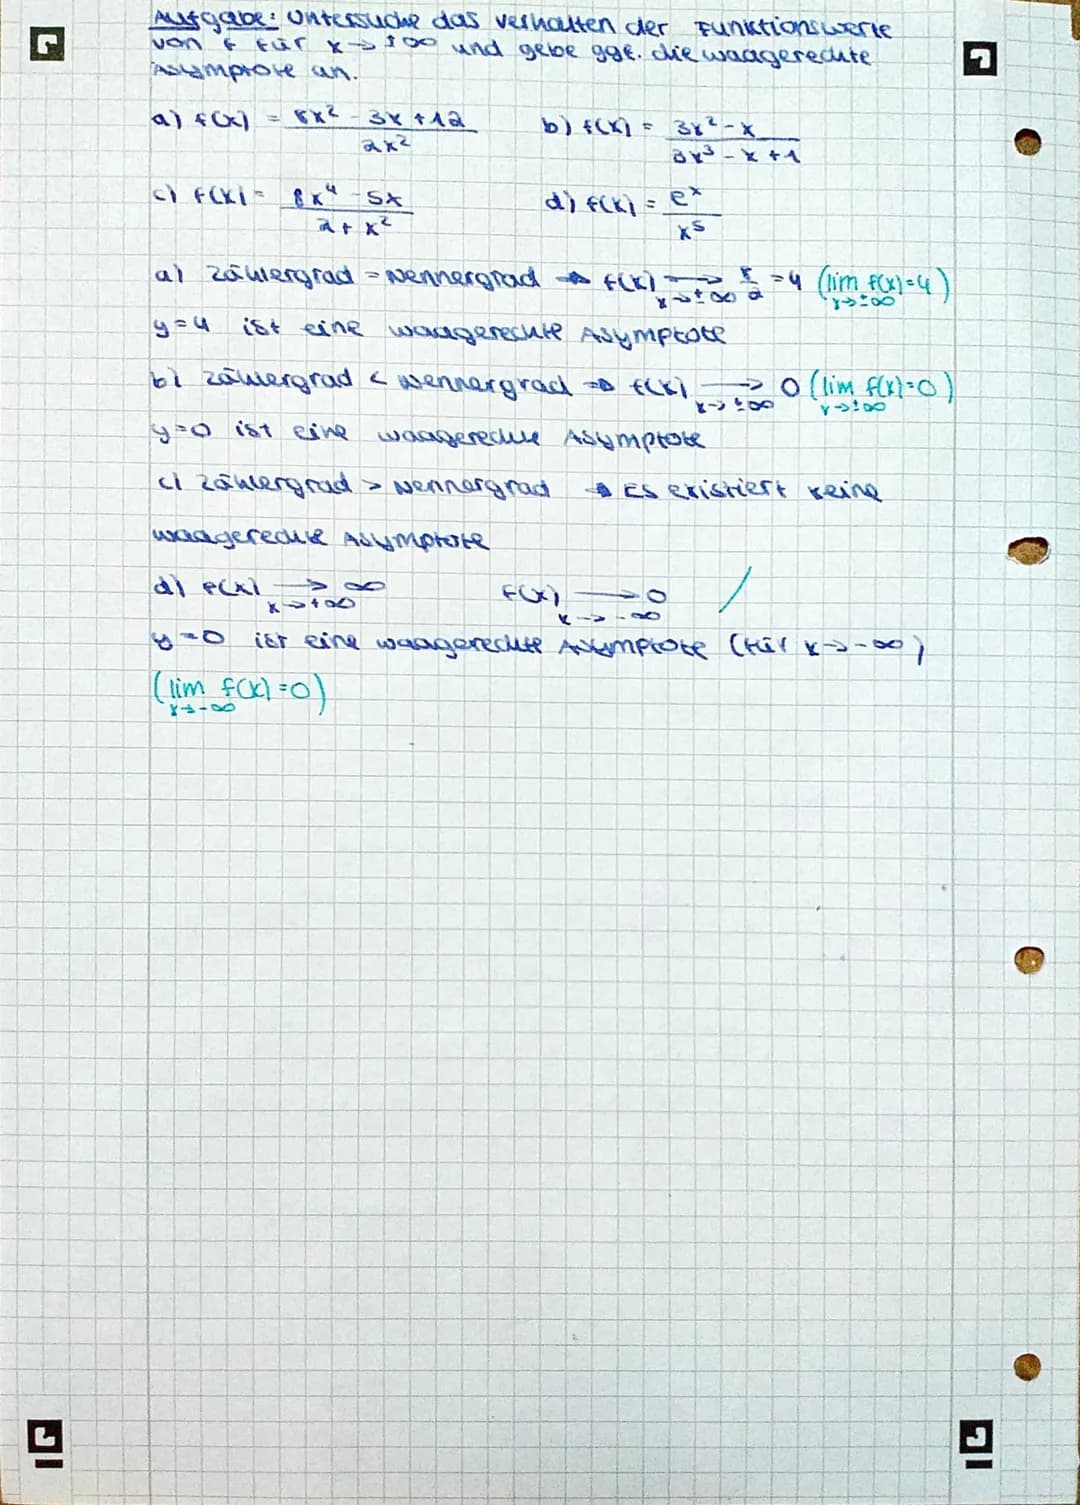 Aufgabe: Untersuche das Verhalten der Funktionswerte
von f für x → ±∞ und gebe ggf. die waagerechte
Asymptote an.
a) f(x) = 8x² - 3x + 12 / 2x² b) f(x) = 3x² - x / 3x³ - x + 1
c) f(x) = 8x⁴ - 5x / 2 + x² d) f(x) = eˣ / x⁵
a) Zählergrad = Nennergrad ⇒ f(x) → x→±∞ 8/2 = 4 (lim x→±∞ f(x)=4)
y=4 ist eine waagerechte Asymptote
b) Zählergrad < Nennergrad ⇒ f(x) → x→±∞ 0 (lim x→±∞ f(x)=0)
y=0 ist eine waagerechte Asymptote
c) Zählergrad > Nennergrad ⇒ Es existiert keine
waagerechte Asymptote
d) f(x) → x→+∞ ∞ f(x) → x→-∞ 0 /
y=0 ist eine waagerechte Asymptote (für x→-∞)
(lim x→-∞ f(x)=0)